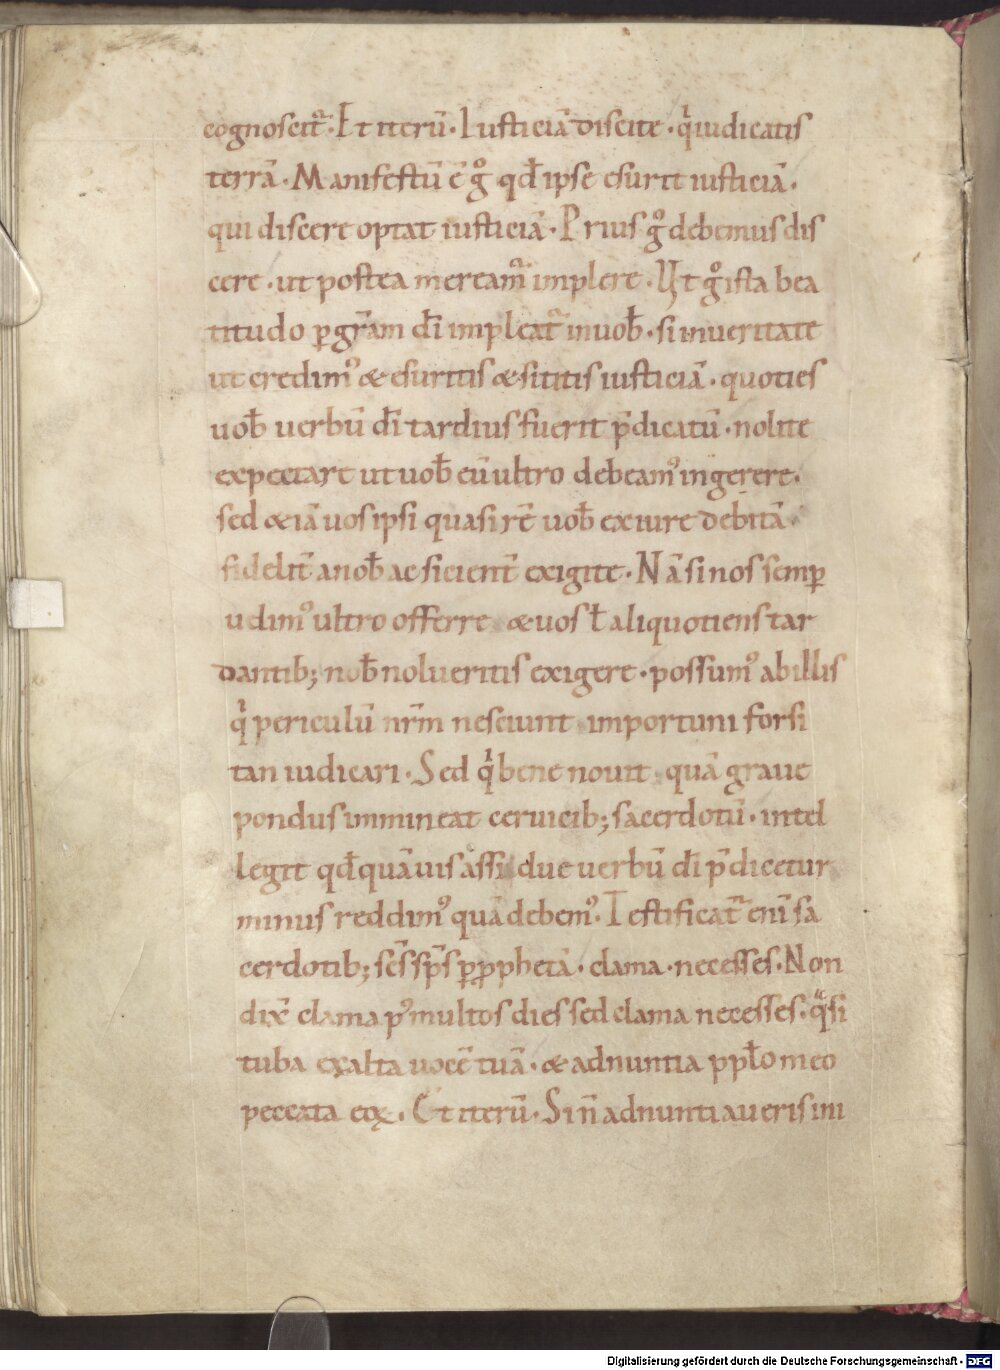 cognoscit᷑· Et iterū· Iusticiā discite· qͥ iudicatis
terrā· Manifestū ē gͦ qđ ipse esurit iusticiā·
qui discere optat iusticiā· Prius gͦ debemus dis
cere· ut postea meream᷑ implere· Ut gͦ ista bea
titudo ꝑ gr̄am dī impleat᷑ in uob̄· si in ueritate
ut credimꝰ & esuritis & sititis iusticiā· quoties
uob̄ uerbū dī tardius fuerit p̄dicatū· nolite
expectare ut uob̄ eū ultro debeamꝰ ingerere·
sed & iā uos ipsi quasi rē uob̄ ex iure debitā
fidelit̄ a nob̄ ac sicient̄ exigite· Nā si nos semꝑ
udimꝰ ultro offerre & uos ł aliquotiens tar
dantib; nob̄ nolueritis exigere· possumꝰ ab illis
qͥ periculū nr̄m nesciunt importuni forsi
tan iudicari· Sed qͥ bene nouit quā graue
pondus immineat ceruicib; sacerdotū· intel
legit qđ quāuis assidue uerbū dī p̄dicetur
minus reddimꝰ quā debemꝰ· Testificat᷑ enī sa
cerdotib; sc̄s sp̄s ꝑ ꝓphetā· clama· ne cesses· Non
dix̄ clama pꝰ multos dies sed clama ne cesses· qͣsi
tuba exalta uocē tuā· & adnuntia pp̄lo meo
peccata eoꝝ· Et iterū· Si n̄ adnuntiaueris ini
Digitalisierung gefördert durch die Deutsche Forschungsgemeinschaft · DFG